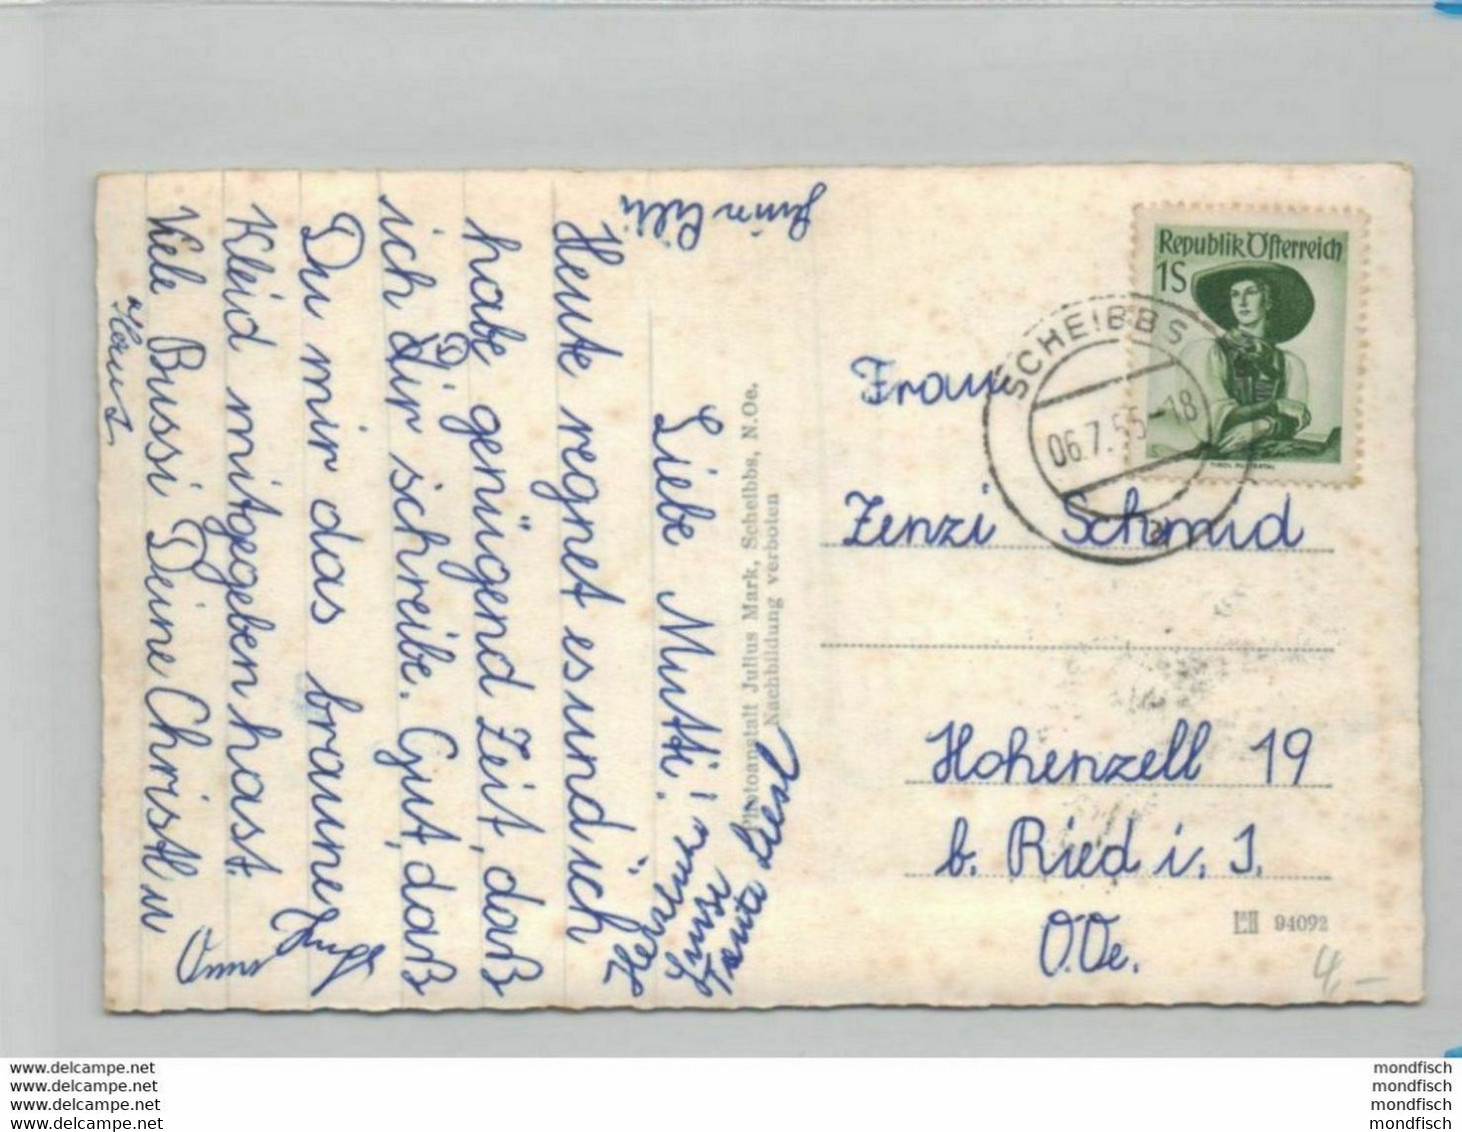 Liebe Mutti!
Heute regnet es und ich
habe genügend Zeit, daß
ich Dir schreibe. Gut, daß
Du mir das braune
Kleid mitgegeben hast.
Viele Bussi Deine Christl u
Herzliche
Tante Liesl
Photoanstalt Julius Mark, Scheibbs, N.Oe.
Nachbildung verboten
Republik Österreich
1S
SCHEIBBS
06.7.55-18
a
Frau
Zenzi Schmid
Hohenzell 19
b. Ried i. I.
O.Oe.
94092
4,-
www.delcampe.net
www.delcampe.net
www.delcampe.net
www.delcampe.net
mondfisch
mondfisch
mondfisch
mondfisch